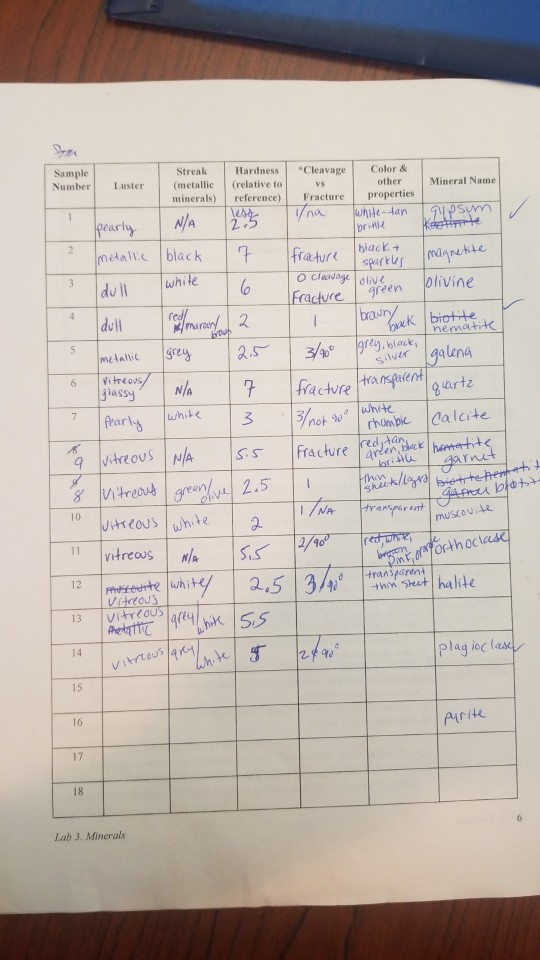 Sample Number | Luster | Streak (metallic minerals) | Hardness (relative to reference) | *Cleavage vs Fracture | Color & other properties | Mineral Name
1 | pearly | N/A | less 2.5 | 1/na | white-tan brittle | gypsum Kaolinite
2 | metallic | black | 7 | fracture | black + sparkles | magnetite
3 | dull | white | 6 | 0 cleavage Fracture | olive green | olivine
4 | dull | red/maroon/brown | 2 | 1 | brown/black | biotite hematite
5 | metallic | grey | 2.5 | 3/90° | grey, black, silver | galena
6 | vitreous/glassy | N/A | 7 | fracture | transparent | quartz
7 | Pearly | white | 3 | 3/not 90° | white rhombic | Calcite
8 9 | vitreous | N/A | 5.5 | Fracture | red, tan, green, black brittle | hematite garnet
8 | vitreous | green/olive | 2.5 | 1 | thin sheets/layers | biotite hematite garnet biotite
10 | vitreous | white | 2 | 1/NA | transparent | muscovite
11 | vitreous | N/A | 5.5 | 2/90° | red, white, brown pink, orange | orthoclase
12 | muscovite vitreous | white/ | 2.5 | 3/90° | transparent thin sheet | halite
13 | vitreous metallic | grey/white | 5.5
14 | vitreous | grey/white | 5 | 2 90° | | plagioclase
15
16 | pyrite
17
18
6
Lab 3. Minerals